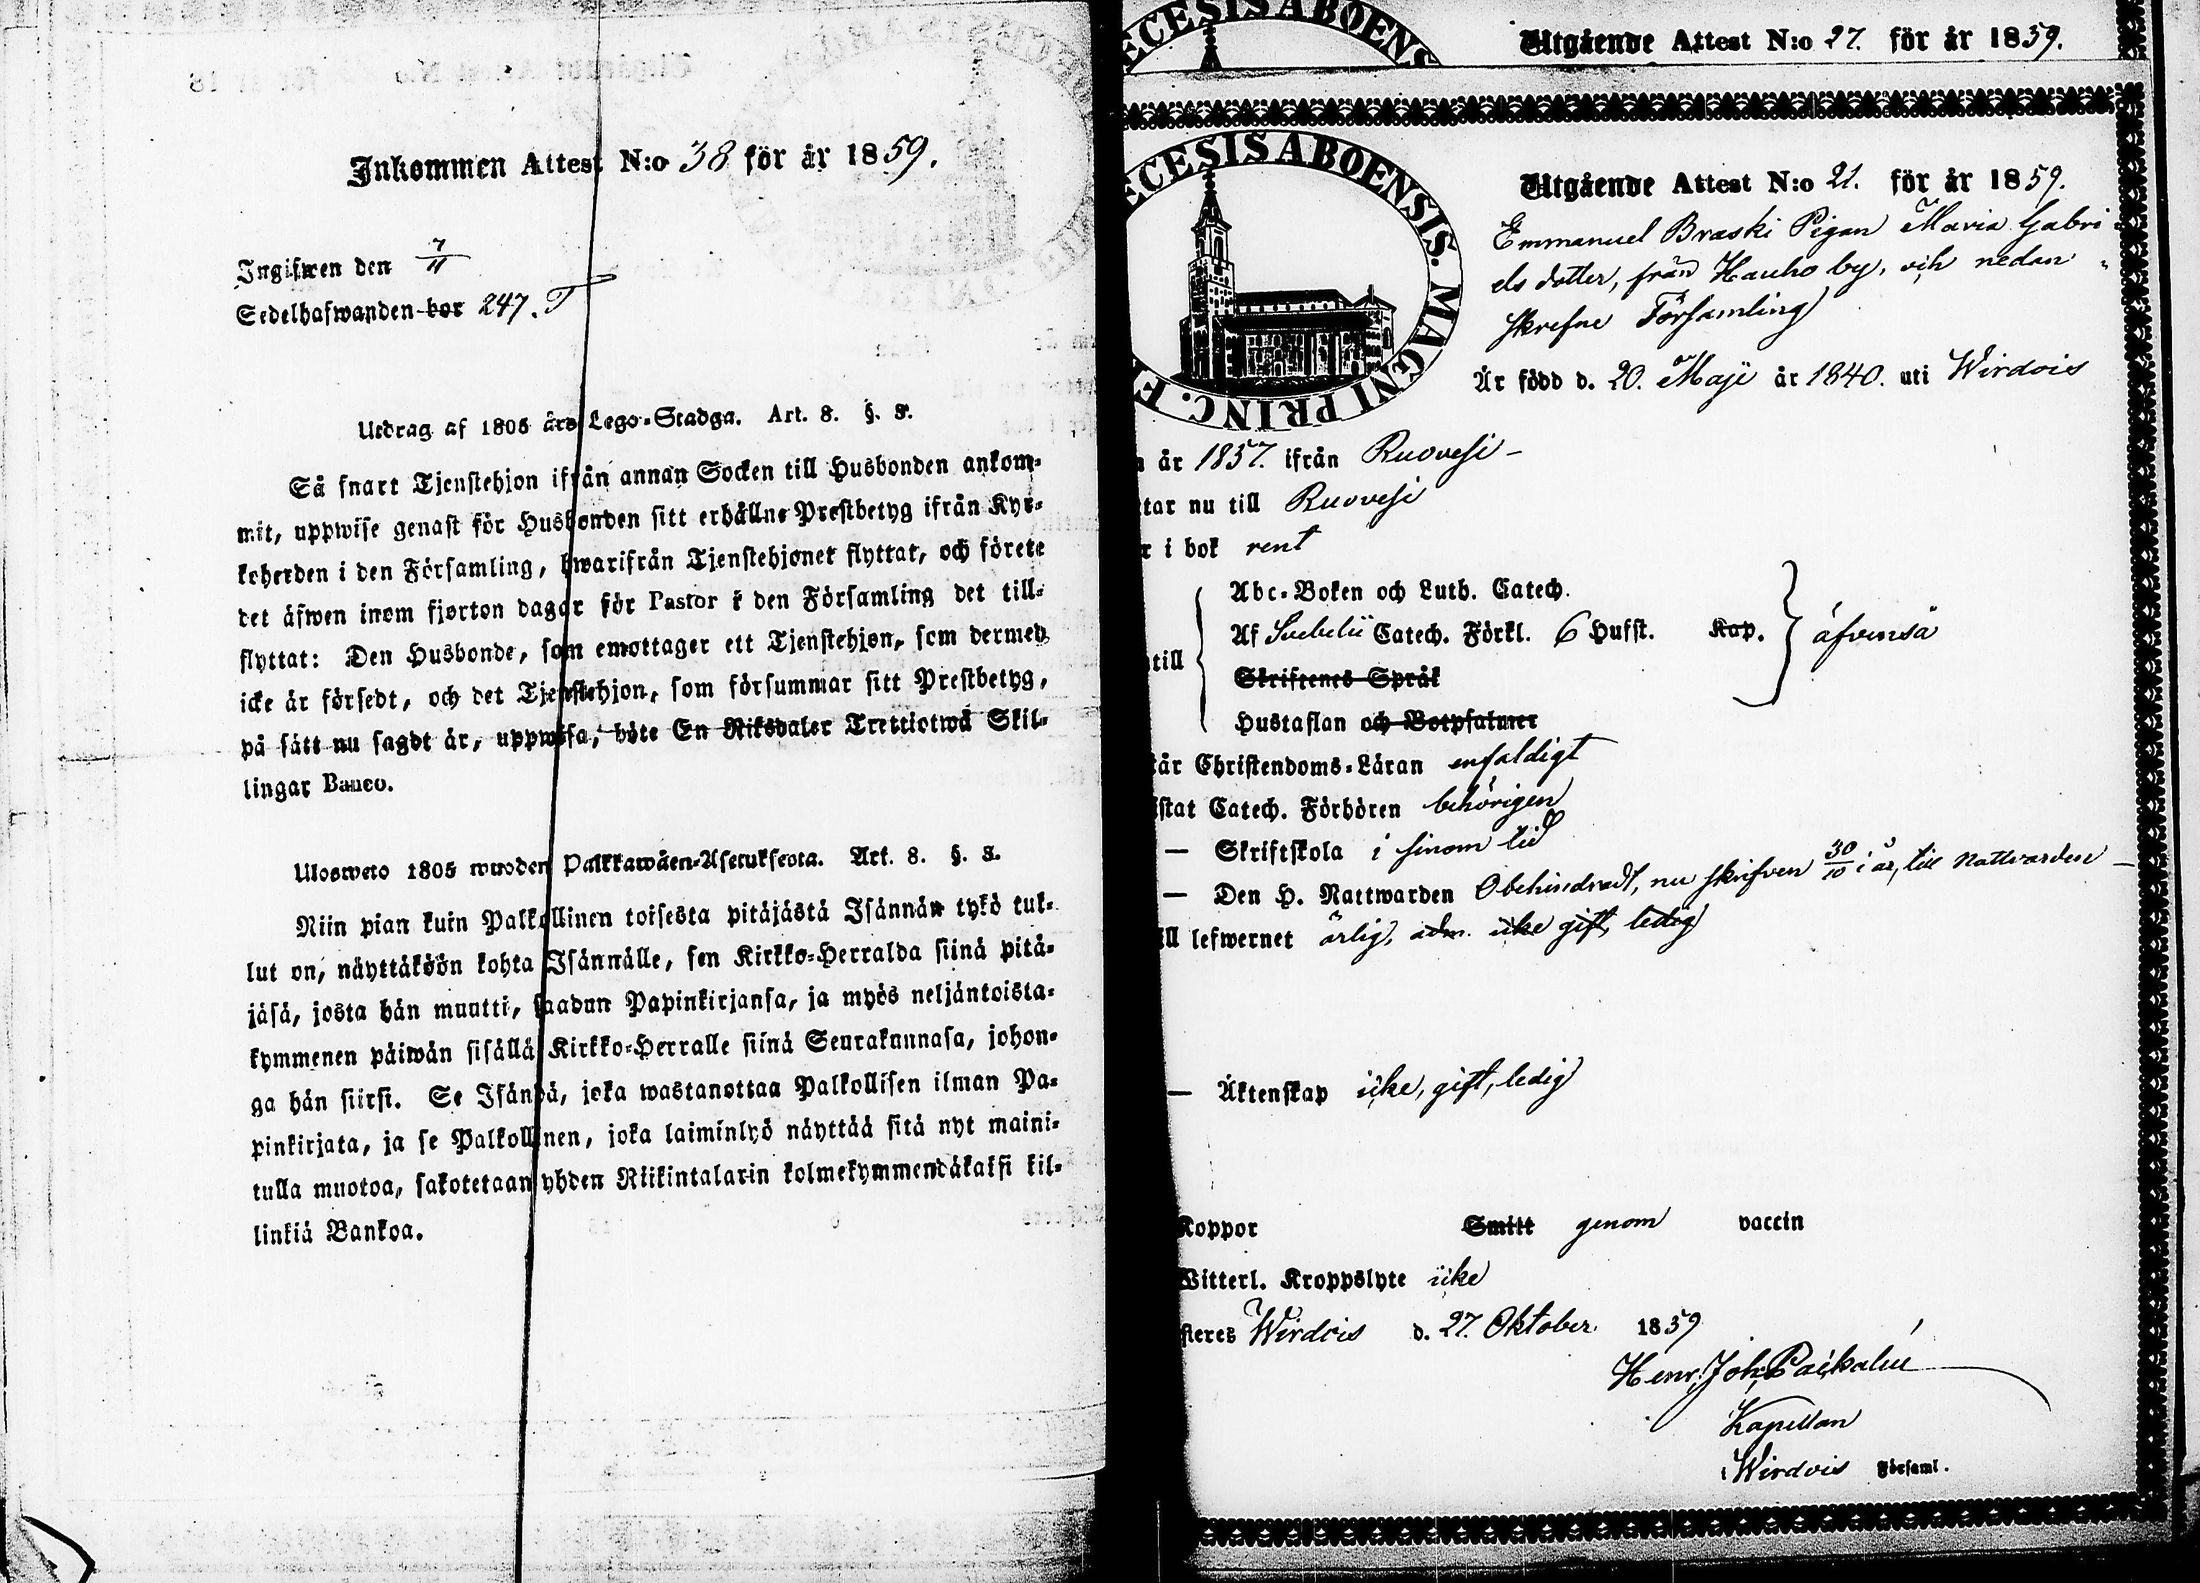 Inkommen Attest N:o 38 för år 1859.
Ingifwen den 7/11
Sedelhafwanden bor 247. T
Utdrag af 1805 års Lego-Stadga. Art. 8. §. 3.
Så snart Tjenstehjon ifrån annan Socken till Husbonden ankom-
mit, uppwise genast för Husbonden sitt erhållne Prestbetyg ifrån Kyr-
koherden i den Församling, hwarifrån Tjenstehjonet flyttat, och förete
det äfwen inom fjorton dagar för Pastor i den Församling det till-
flyttat: Den Husbonde, som emottager ett Tjenstehjon, som dermed
icke är försedt, och det Tjenstehjon, som försummar sitt Prestbetyg,
på sätt nu sagdt är, uppwisa, böte En Riksdaler Trettiotwå Skil-
lingar Banco.
Uloswето 1805 wuoden Palkkawäen-Asetuksesta. Art. 8. §. 3.
Niin pian kuin Palkollinen toisesta pitäjästä Isännän tykö tul-
lut on, näyttäköön kohta Isännälle, sen Kirkko-Herralda siinä pitä-
jäsä, josta hän muutti, saadun Papinkirjansa, ja myös neljäntoista-
kymmenen päiwän sisällä Kirkko-Herralle siinä Seurakunnasa, johon-
ga hän siirsi. Se Isändä, joka wastanottaa Palkollisen ilman Pa-
pinkirjata, ja se Palkollinen, joka laiminlyö näyttää sitä nyt maini-
tulla muotoa, sakotetaan yhden Riikintalarin kolmekymmendäkaksi kil-
linkiä Bankoa.
ECESIS ABOENS
Utgående Attest N:o 27. för år 1859.
ECESIS ABOENSIS. MAGNI PRINC. F
Utgående Attest N:o 21. för år 1859.
Emmanuel Braski Pigan Maria Gabri
els dotter, från Hauho by, och nedan
skrefne Församling
Är född d. 20. Maji år 1840. uti Wirdois
n år 1857. ifrån Ruovesi
tar nu till Ruovesi
r i bok rent
Abc-Boken och Luth. Catech.
Af Svebelii Catech. Förkl. 6 Hufst. Kap. äfvenså
till
Skriftenes Språk
Hustaflan och Botpsalmer
tår Christendoms-Läran enfaldigt
istat Catech. Förhören behörigen
— Skriftskola i sinom tid
— Den H. Nattwarden Obehindradt, nu skrifven 30/10 i år, till nattvarden
ill lefwernet ärlig, adm. icke gift, ledig
— Äktenskap icke, gift, ledig
Koppor Smitt genom vaccin
Witterl. Kroppslyte icke
steres Wirdois d. 27. Oktober 1859
Henr. Joh. Paikalin
Kapellan
i Wirdois Församl.